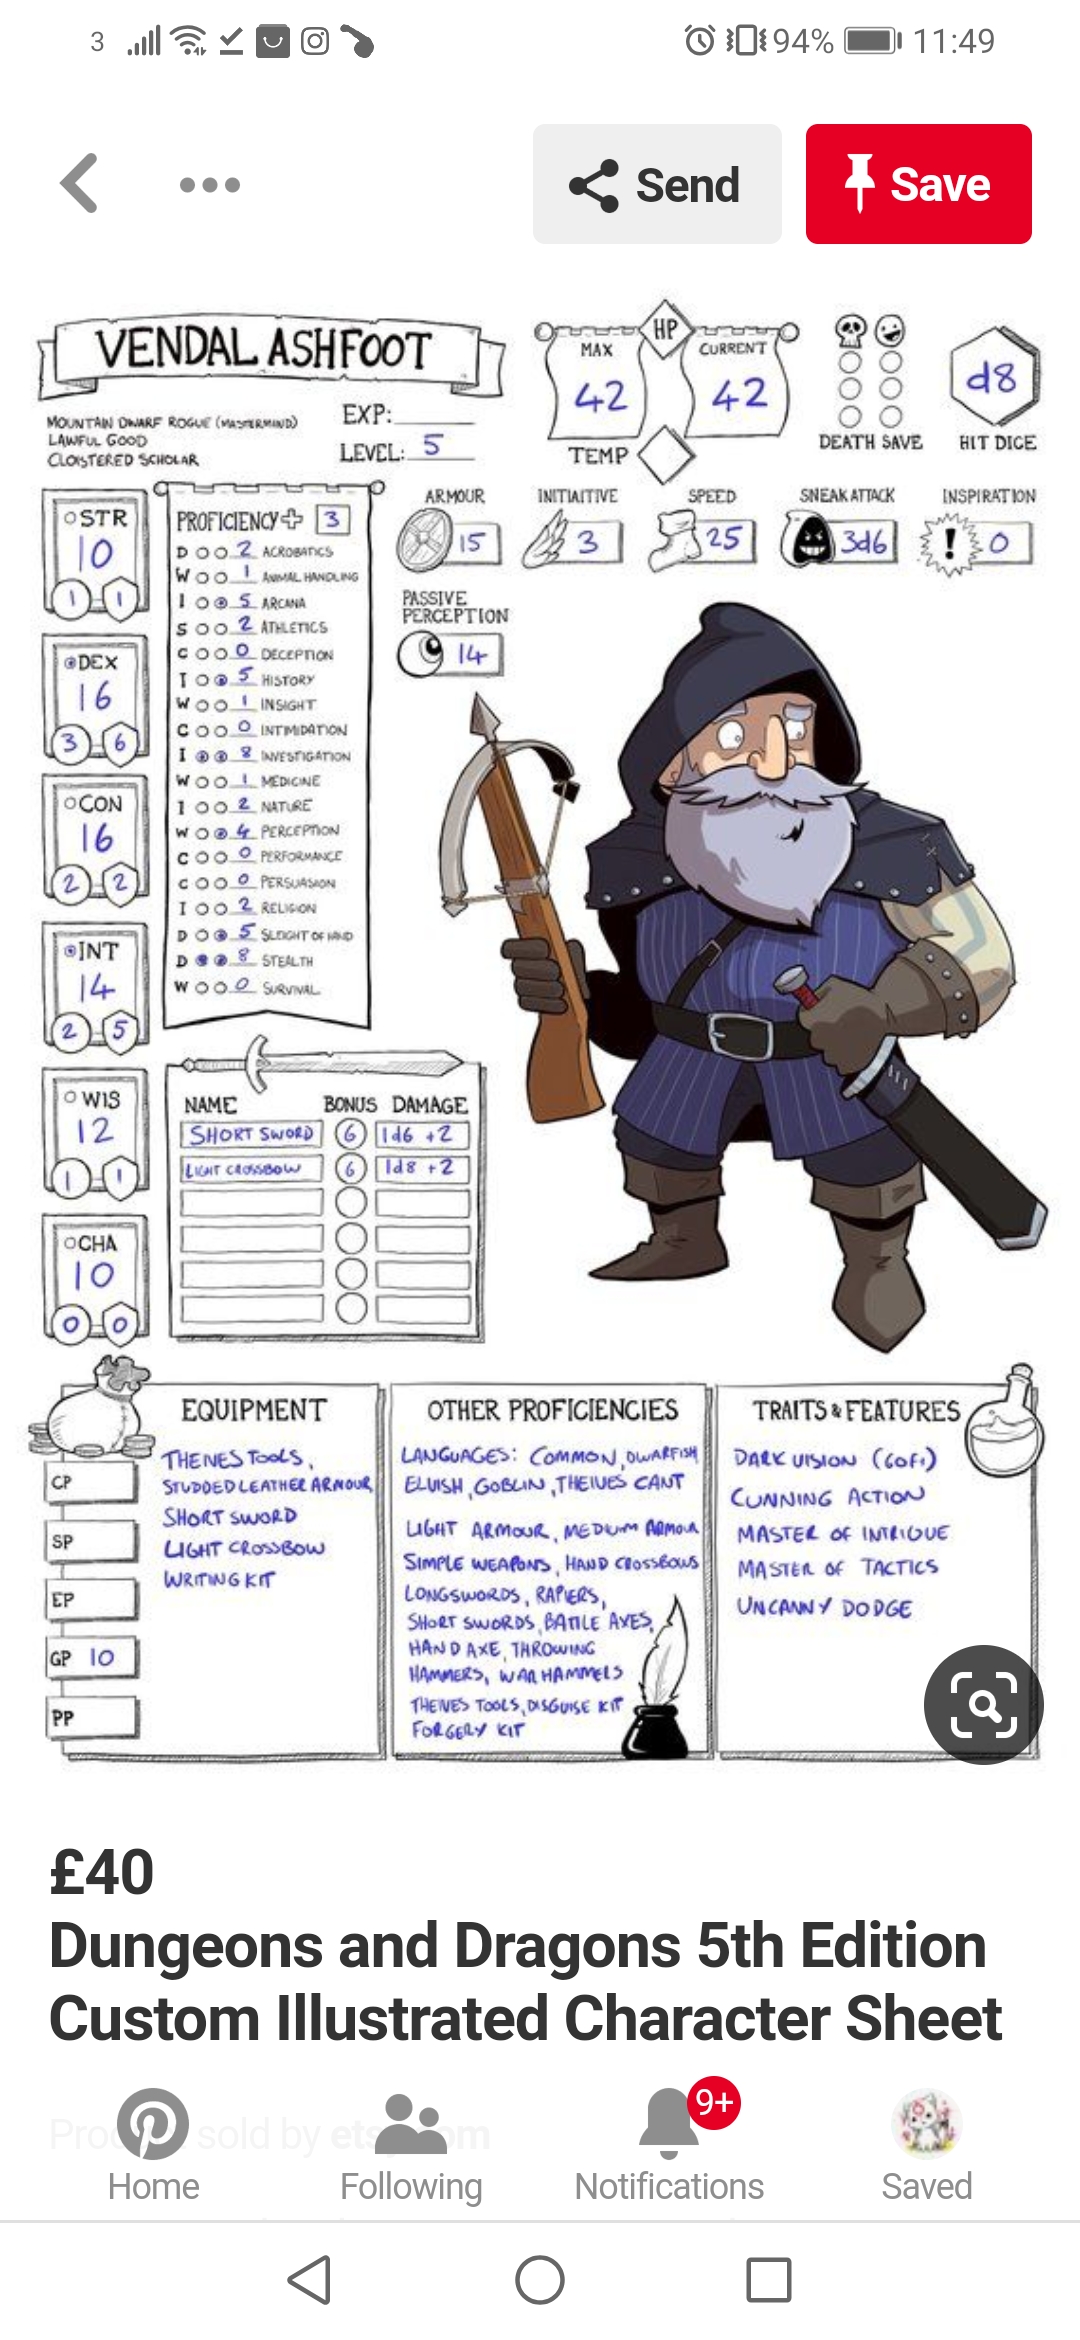 3
94% 11:49
Send
Save
VENDAL ASHFOOT
MOUNTAIN DWARF ROGUE (MASTERMIND)
LAWFUL GOOD
CLOISTERED SCHOLAR
EXP:
LEVEL: 5
HP
MAX
42
CURRENT
42
TEMP
DEATH SAVE
d8
HIT DICE
STR
10
1 1
DEX
16
3 6
CON
16
2 2
INT
14
2 5
WIS
12
1 1
CHA
10
0 0
PROFICIENCY + 3
D 2 ACROBATICS
W 1 ANIMAL HANDLING
I 5 ARCANA
S 2 ATHLETICS
C 0 DECEPTION
I 5 HISTORY
W 1 INSIGHT
C 0 INTIMIDATION
I 8 INVESTIGATION
W 1 MEDICINE
I 2 NATURE
W 4 PERCEPTION
C 0 PERFORMANCE
C 0 PERSUASION
I 2 RELIGION
D 5 SLEIGHT OF HAND
D 8 STEALTH
W 0 SURVIVAL
ARMOUR
15
INITIAITIVE
3
SPEED
25
SNEAK ATTACK
3d6
INSPIRATION
! 0
PASSIVE
PERCEPTION
14
NAME BONUS DAMAGE
SHORT SWORD 6 1d6 +2
LIGHT CROSSBOW 6 1d8 +2
CP
SP
EP
GP 10
PP
EQUIPMENT
THEIVES TOOLS,
STUDDED LEATHER ARMOUR,
SHORT SWORD
LIGHT CROSSBOW
WRITING KIT
OTHER PROFICIENCIES
LANGUAGES: COMMON, DWARFISH
ELVISH, GOBLIN, THEIVES CANT
LIGHT ARMOUR, MEDIUM ARMOUR
SIMPLE WEAPONS, HAND CROSSBOWS
LONGSWORDS, RAPIERS,
SHORT SWORDS, BATTLE AXES,
HAND AXE, THROWING
HAMMERS, WAR HAMMERS
THEIVES TOOLS, DISGUISE KIT
FORGERY KIT
TRAITS & FEATURES
DARK VISION (60ft)
CUNNING ACTION
MASTER OF INTRIGUE
MASTER OF TACTICS
UNCANNY DODGE
£40
Dungeons and Dragons 5th Edition
Custom Illustrated Character Sheet
sold by
Home
Following
9+
Notifications
Saved